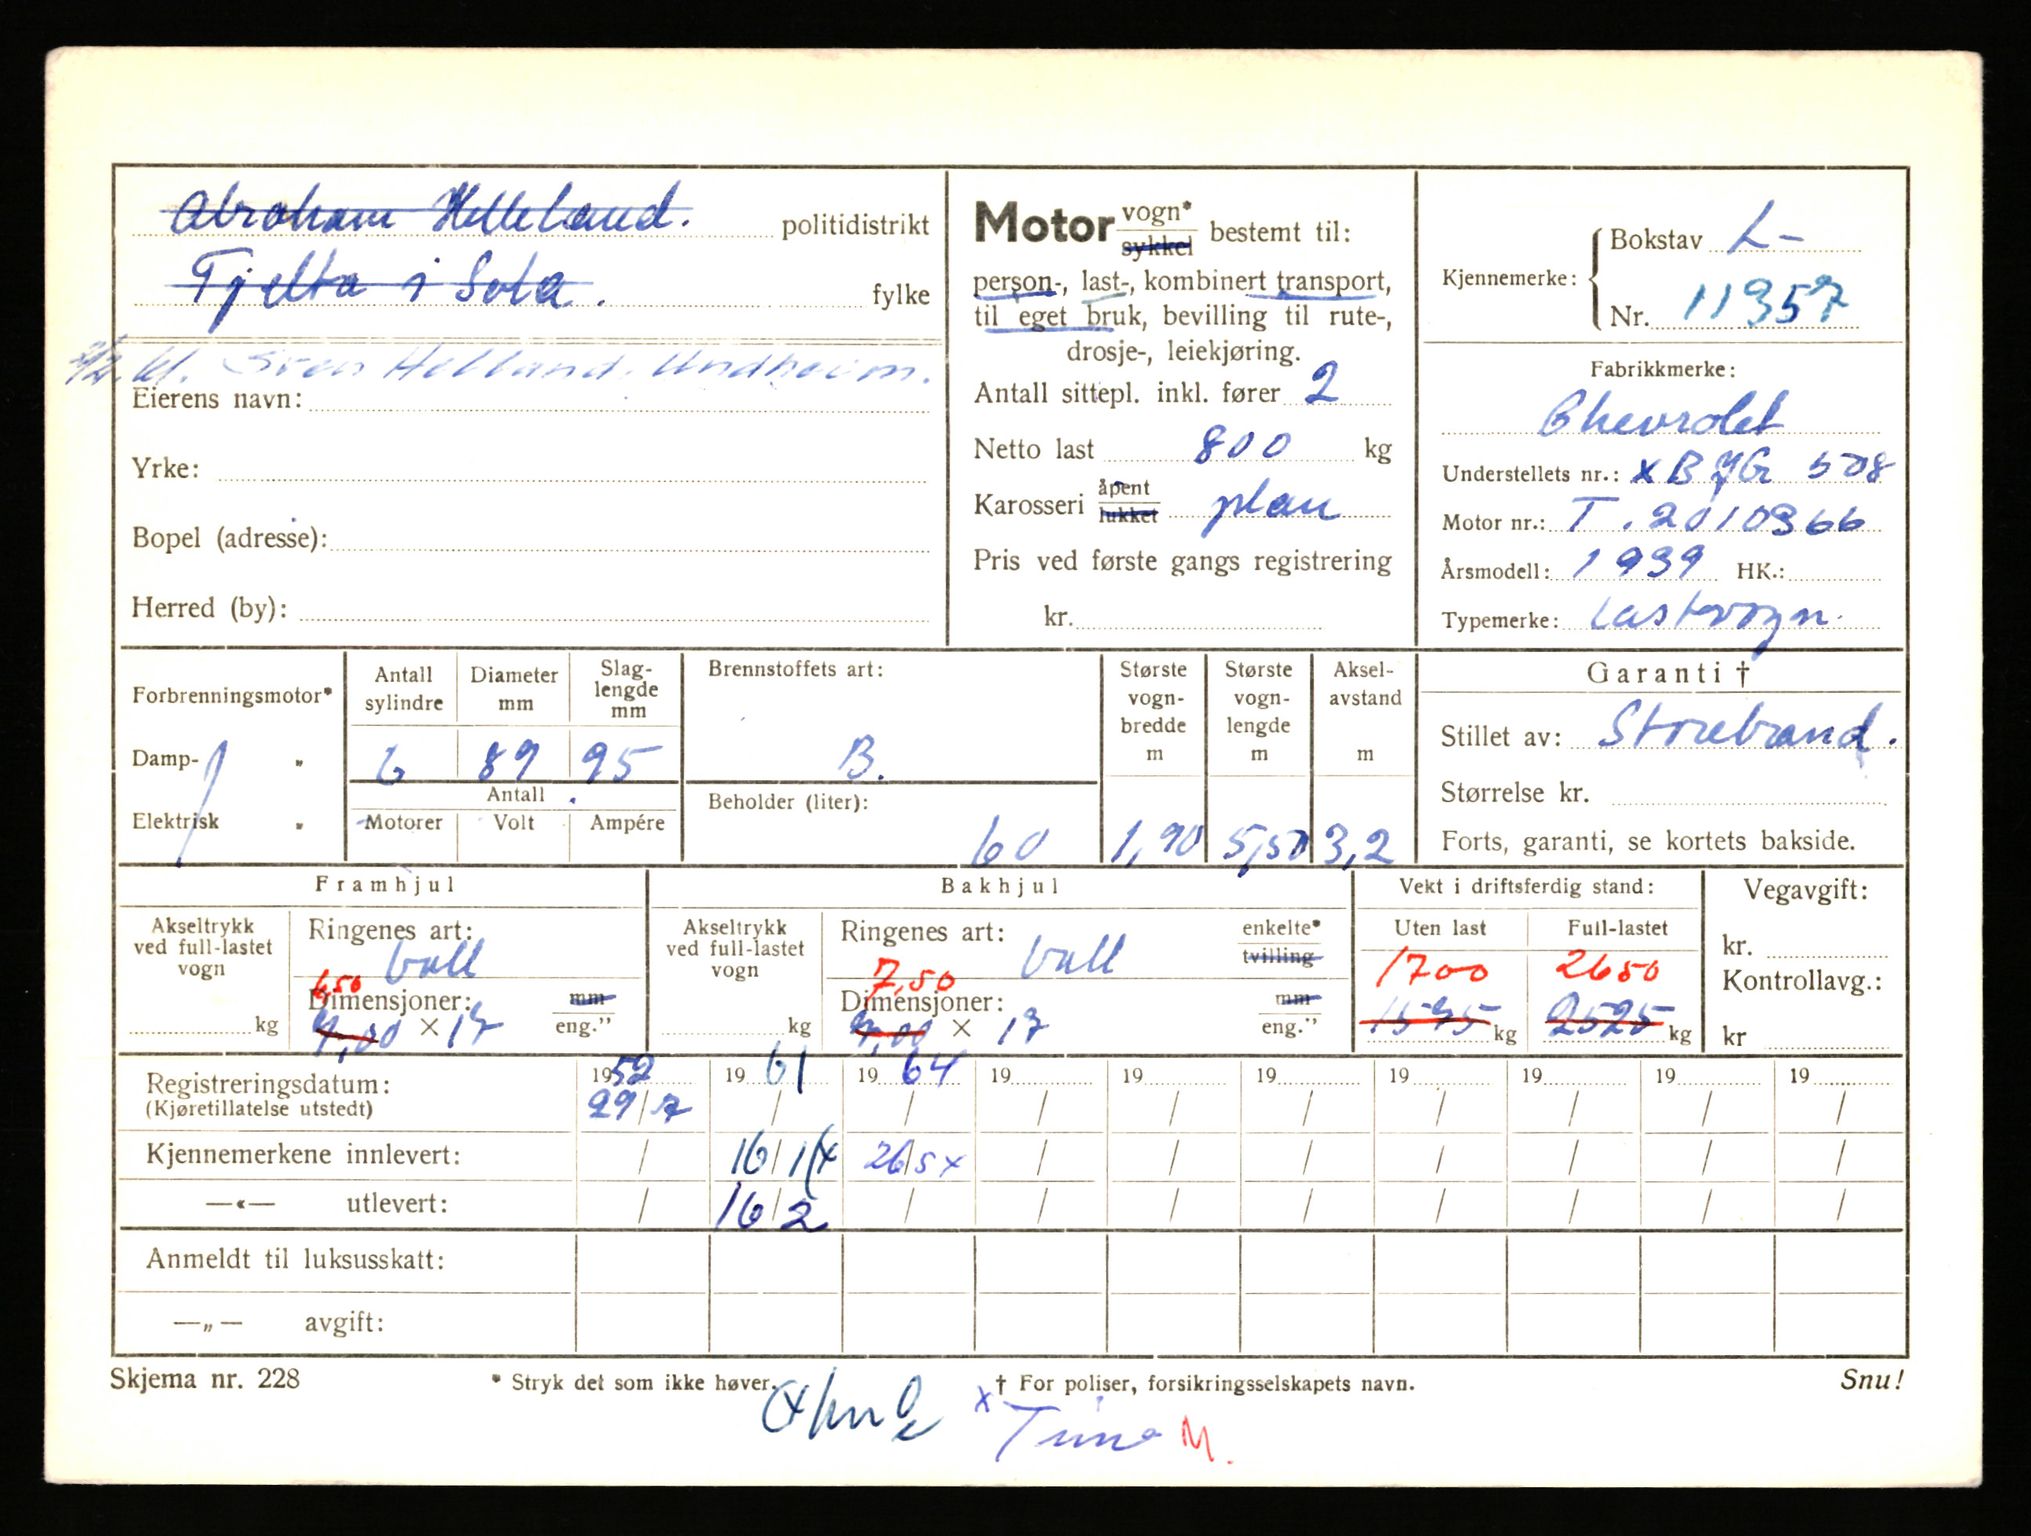 Abraham Helleland. politidistrikt
Tjelta i Sola. fylke
Sven Helland. Undheim.
Eierens navn:
Yrke:
Bopel (adresse):
Herred (by):
Motor vogn* sykkel bestemt til:
person-, last-, kombinert transport,
til eget bruk, bevilling til rute-,
drosje-, leiekjøring.
Antall sittepl. inkl. fører 2
Netto last 800 kg
Karosseri åpent lukket plan
Pris ved første gangs registrering
kr.
Kjennemerke: Bokstav L-
Nr. 11357
Fabrikkmerke:
Chevrolet
Understellets nr.: x B YG 508
Motor nr.: T. 2010366
Årsmodell: 1939 HK.:
Typemerke: Lastevogn.
Forbrenningsmotor*
Damp- „
Elektrisk „
Antall sylindre
Diameter mm
Slag-lengde mm
6 89 95
Antall
Motorer Volt Ampére
Brennstoffets art:
B.
Beholder (liter):
60
Største vogn-bredde m
1,90
Største vogn-lengde m
5,50
Aksel-avstand m
3,2
Garanti †
Stillet av: Storebrand.
Størrelse kr.
Forts, garanti, se kortets bakside.
Framhjul
Akseltrykk
ved full-lastet
vogn
kg
Ringenes art:
ball
6,50
Dimensjoner: mm
7,00 × 17 eng."
Bakhjul
Akseltrykk
ved full-lastet
vogn
kg
Ringenes art: enkelte*
ball tvilling
7,50
Dimensjoner: mm
7,00 × 17 eng."
Vekt i driftsferdig stand:
Uten last Full-lastet
1700 2650
1575 kg 2525 kg
Vegavgift:
kr.
Kontrollavg.:
kr
Registreringsdatum: 1952 19 61 19 64 19 19 19 19 19 19 19
(Kjøretillatelse utstedt) 29/7 / / / / / / / / /
Kjennemerkene innlevert: / 16/1 x 26/5 x / / / / / / /
—«— utlevert: / 16/2 / / / / / / / /
Anmeldt til luksusskatt:
—„— avgift:
Skjema nr. 228 * Stryk det som ikke høver. † For poliser, forsikringsselskapets navn. Snu!
x
M.